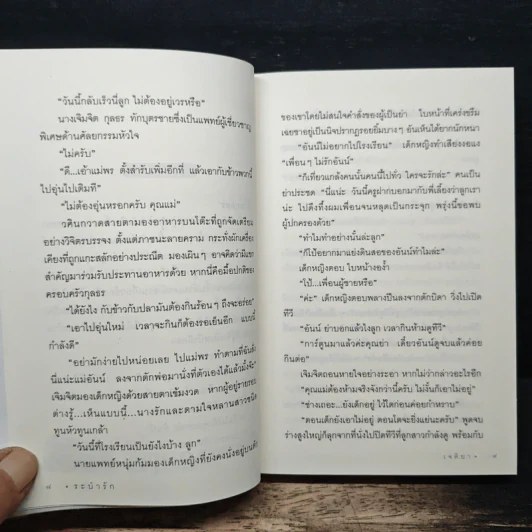 “วันนี้กลับเร็วนี่ลูก ไม่ต้องอยู่เวรหรือ”
นางเจิมจิต กุลธร ทักบุตรชายซึ่งเป็นแพทย์ผู้เชี่ยวชาญ
พิเศษด้านศัลยกรรมหัวใจ
“ไม่ครับ”
“ดี...เอ้าแม่พร ตั้งสำรับเพิ่มอีกที่ แล้วเอากับข้าวพวกนี้
ไปอุ่นไปเติมที”
“ไม่ต้องอุ่นหรอกครับ คุณแม่”
วศินกวาดสายตามองอาหารบนโต๊ะที่ถูกจัดเตรียม
อย่างวิจิตรบรรจง ตั้งแต่ภาชนะลายคราม กระทั่งผักเครื่อง
เคียงที่ถูกแกะสลักอย่างประณีต มองเผินๆ อาจคิดว่ามีแขก
สำคัญมาร่วมรับประทานอาหารด้วย หากนี่คือมื้อปกติของ
ครอบครัวกุลธร
“ได้ยังไง กับข้าวกับปลามันต้องกินร้อนๆ ถึงจะอร่อย”
“เอาไปอุ่นใหม่ เวลาจะกินก็ต้องรอเย็นอีก แบบนี้
กำลังดี”
“อย่ามักง่ายไปหน่อยเลย ไปแม่พร ทำตามที่ฉันสั่ง
นี่แน่ะแม่อันน์ ลงจากตักพ่อมานั่งที่ตัวเองได้แล้วมั้ง
เจิมจิตมองเด็กหญิงด้วยสายตาเข้มงวด หากผู้อยู่รายรอบ
ต่างรู้...เห็นแบบนี้...นางรักและตามใจหลานสาวชนิด
ทูนหัวทูนเกล้า
“วันนี้ที่โรงเรียนเป็นยังไงบ้าง ลูก”
นายแพทย์หนุ่มก้มมองเด็กหญิงที่ยังคงนั่งอยู่บนตัก
๘ • ระบำรัก
ของเขาโดยไม่สนใจคำสั่งของผู้เป็นย่า ใบหน้าที่เคร่งขรึม
เฉยชาอยู่เป็นนิจปรากฏรอยยิ้มบางๆ อันเห็นได้ยากนักหนา
“อันน์ไม่อยากไปโรงเรียน” เด็กหญิงทำเสียงงอแง
“เพื่อนๆ ไม่รักอันน์”
“ก็เที่ยวแกล้งคนนั้นคนนี้ไปทั่ว ใครจะรักล่ะ” คนเป็น
ย่าประชด “นี่แน่ะ วันนี้ครูฝากบอกมากับพี่เลี้ยงว่าลูกเรา
น่ะ ไปดึงทึ้งผมเพื่อนจนหลุดเป็นกระจุก พรุ่งนี้ขอพบ
ผู้ปกครองด้วย”
“ทำไมทำอย่างนั้นล่ะลูก”
“ก็โป้อยากมาแย่งดินสอของอันน์ทำไมล่ะ”
เด็กหญิงตอบ ใบหน้างอง้ำ
“โป้...เพื่อนผู้ชายหรือ”
“ค่ะ” เด็กหญิงตอบพลางปีนลงจากตักบิดา วิ่งไปเปิด
ทีวี
“อันน์ ย่าบอกแล้วไงลูก เวลากินห้ามดูทีวี”
“การ์ตูนมาแล้วค่ะคุณย่า เดี๋ยวอันน์ดูจบแล้วค่อย
กินต่อ”
เจิมจิตถอนหายใจอย่างระอา หากไม่ว่ากล่าวอะไรอีก
“คุณแม่ต้องห้ามจริงจังกว่านี้ครับ ไม่งั้นก็เอาไม่อยู่”
“ช่างเถอะ...ยังเด็กอยู่ ไว้โตก่อนค่อยกำหราบ”
“ตอนเด็กยังเอาไม่อยู่ ตอนโตจะยิ่งแย่นะครับ” พูดจบ
ร่างสูงใหญ่ก็ลุกจากที่นั่งไปปิดทีวีที่ลูกสาวกำลังดู พร้อมกับ
เจติยา • ๙